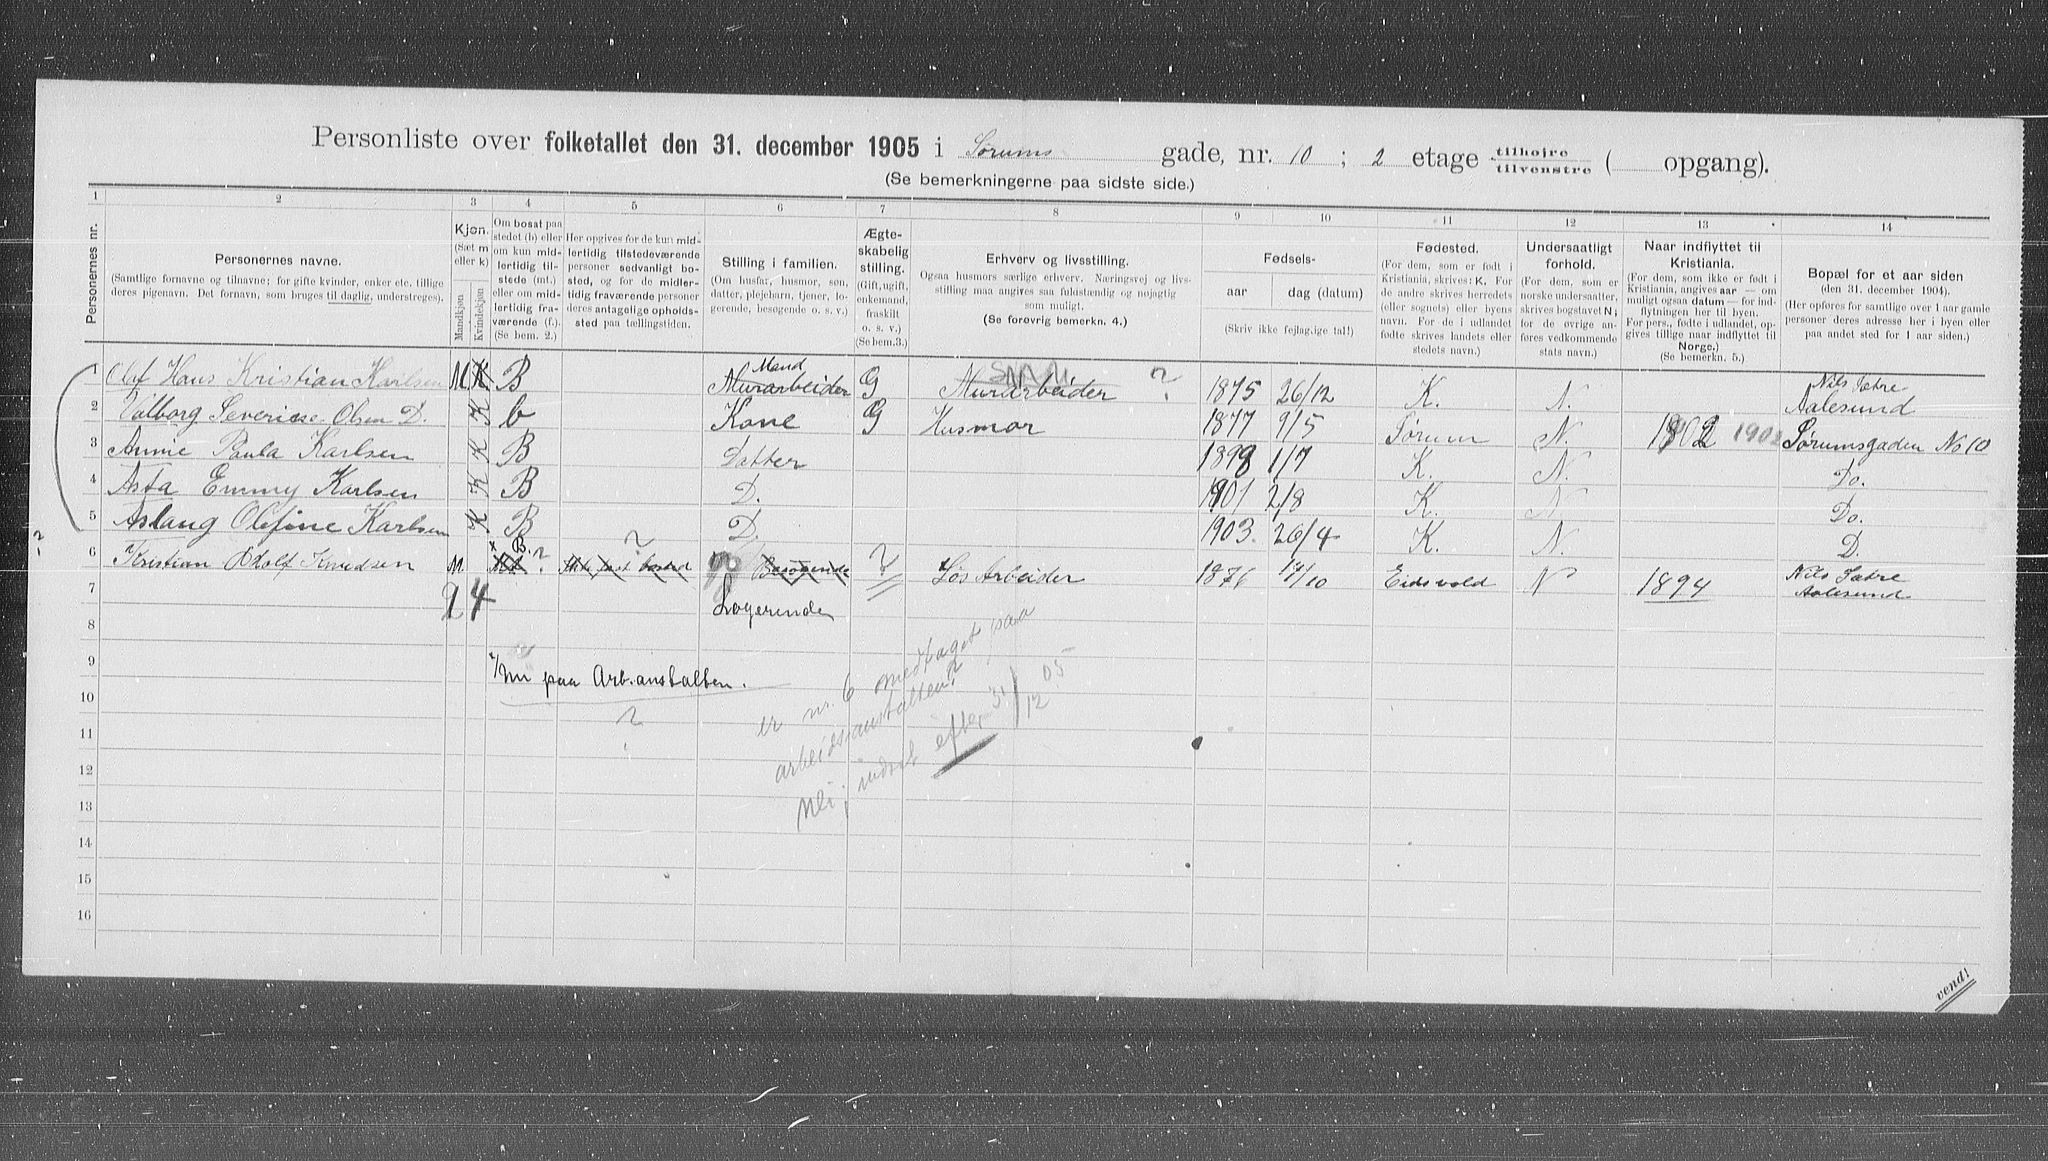 Personliste over folketallet den 31. december 1905 i Sørums gade, nr. 10 ; 2 etage tilhøire / tilvenstre ( opgang).
(Se bemerkningerne paa sidste side.)
1 2 3 4 5 6 7 8 9 10 11 12 13 14
Personernes nr.
Personernes navne.
(Samtlige fornavne og tilnavne; for gifte kvinder, enker etc. tillige
deres pigenavn. Det fornavn, som bruges til daglig, understreges).
Kjøn.
(Sæt m
eller k)
Mandkjøn
Kvindekjøn
Om bosat paa
stedet (b) eller
om kun mid-
lertidig til-
stede (mt.)
eller om mid-
lertidig fra-
værende (f.).
(Se bem. 2.)
Her opgives for de kun mid-
lertidig tilstedeværende
personer sedvanligt bo-
sted, og for de midler-
tidig fraværende personer
deres antagelige opholds-
sted paa tællingstiden.
Stilling i familien.
(Om husfar, husmor, søn,
datter, plejebarn, tjener, lo-
gerende, besøgende o. s. v.)
Ægte-
skabelig
stilling.
(Gift, ugift,
enkemand,
fraskilt
o. s. v.)
(Se bem.3.)
Erhverv og livsstilling.
Ogsaa husmors særlige erhverv. Næringsvej og livs-
stilling maa angives saa fuldstændig og nøjagtig
som muligt.
(Se forøvrig bemerkn. 4.)
Fødsels-
aar dag (datum)
(Skriv ikke fejlagtige tal!)
Fødested.
(For dem, som er født i
Kristiania, skrives: K. For
de andre skrives herredets
(eller sognets) eller byens
navn. For de i udlandet
fødte skrives landets eller
stedets navn.)
Undersaatligt
forhold.
(For de
norske undersaatter,
skrives bogstavet N;
for de øvrige an-
føres vedkommende
stats navn.)
Naar indflyttet til
Kristiania.
(For dem, som ikke er født i
Kristiania, angives aar — om
muligt ogsaa datum — for ind-
flytningen her til byen.
For pers., fødte i udlandet, op-
gives tillige naar indflyttet til
Norge.)
(Se bemerkn. 5.)
Bopæl for et aar siden
(den 31. december 1904).
(Her opføres for samtlige over 1 aar gamle
personer deres adresse her i byen eller
paa andet sted for 1 aar siden.)
1 Olaf Hans Kristian Karlsen M K B Mand Murarbeider G Murarbeider ? 1875 26/12 K. N. Nils Sætre Aalesund
2 Valborg Severine Olsen D. K b Kone G Husmor 1877 9/5 Sørum N. 1902 1902 Sørumsgaden No 10
3 Annie Paula Karlsen K B Datter 1898 1/7 K. N. Do.
4 Asta Emmy Karlsen K B D. 1901 2/8 K. N Do.
5 Aslaug Olefine Karlsen K B D. 1903. 26/4 K. N. D.
6 Kristian Adolf Knudsen M. × B. ? Ikke fast bosted ? Besøgende ? Løs Arbeider 1876 Eidsvold N 1894 Nils Sætre Aalesund
7 2 4 Logerende
8
9 ×/ Nu paa Arb.anstalten.
?
er nr. 6 medtaget paa
arbeidsanstalten?
Nei; indsat efter 31/12 05
10
11
12
13
14
15
16
vend!